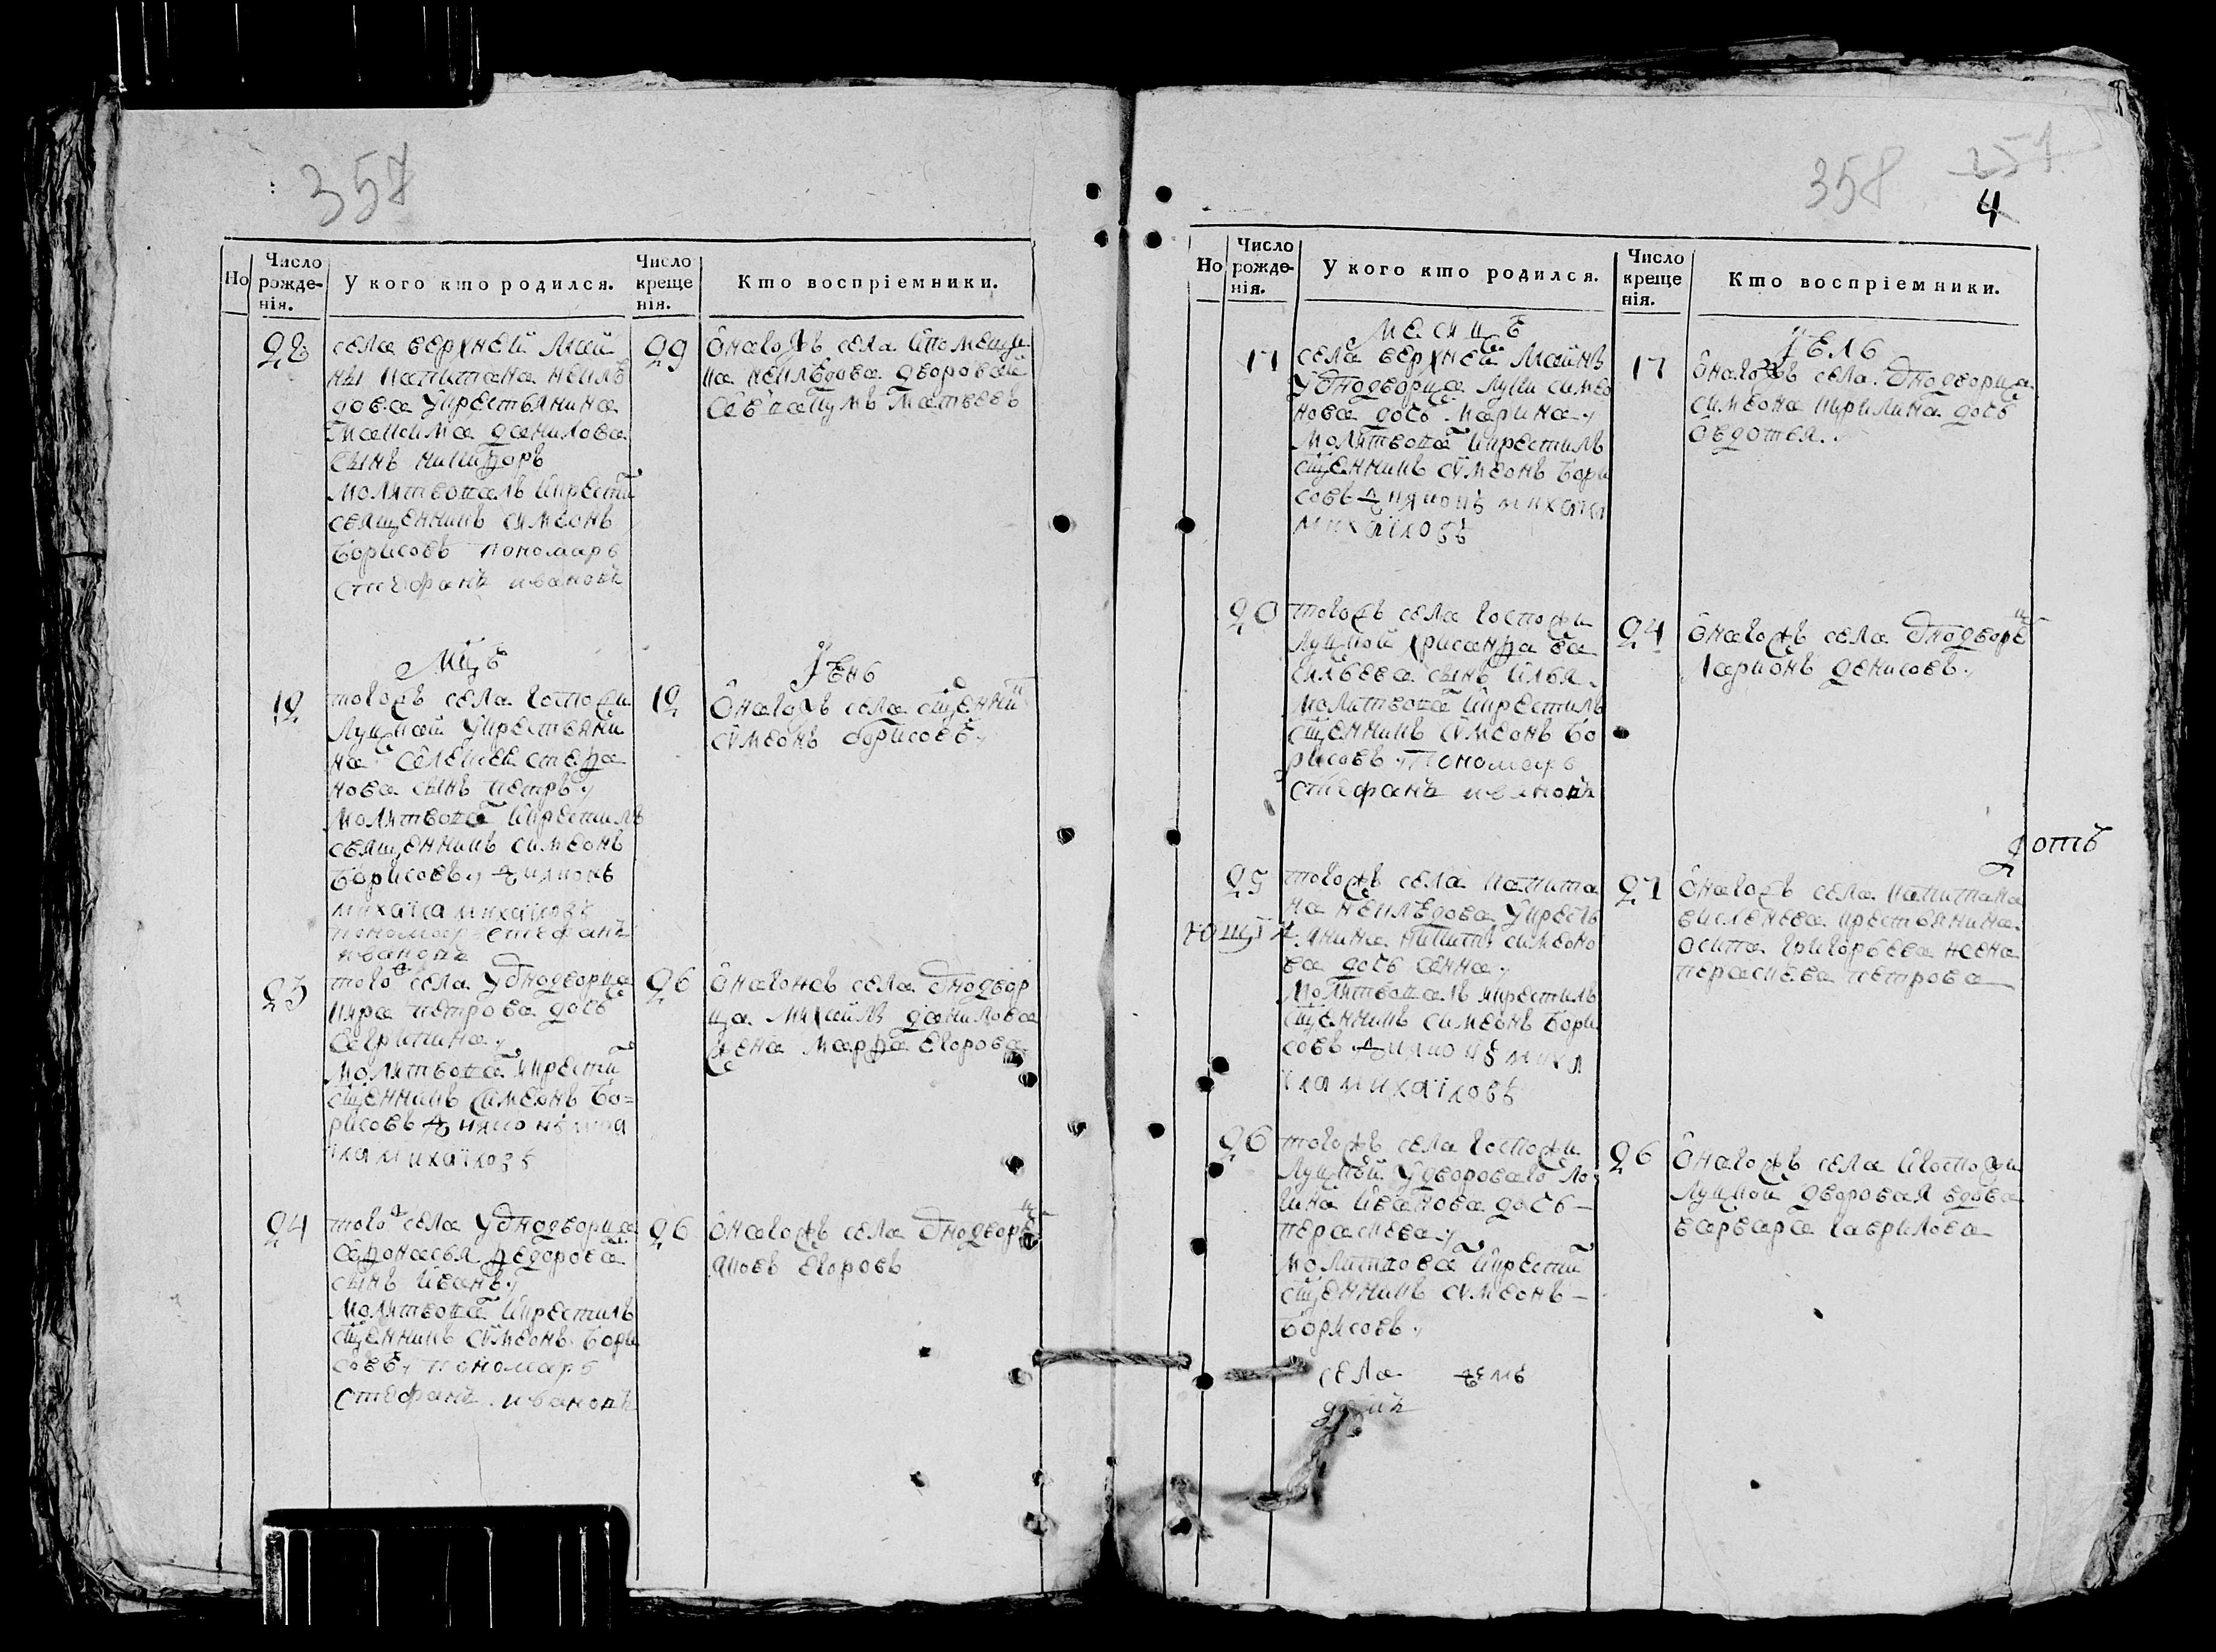 357
Но
Число рожде-нія.
У кого кто родился.
Число креще нія.
Кто воспріемники.
28
села верхней Май
ны капитана неклю
дова укрестьянина
максима данилова
сынъ никифоръ
молитвовалъ икрести
священникъ симеонъ
борисовъ пономарь
стефанъ ивановъ
29
Онагожъ села ипомещи
ка неклюдова дворовой
матвеевъ
Мцъ
Iень
12
тогожъ села госпожи
укрестьяни
на
нова сынъ петръ
молитвова икрестилъ
священникъ симеонъ
борисовъ диаконъ
михаила михаиловъ
пономарь стефанъ
ивановъ
12
Онагожъ села сщенни
симеонъ борисовъ
23
того села уоднодворца
кира петрова дочь
акрипина
молитвова икрести
сщенникъ симеонъ бо=
рисовъ диаконъ миха
ила михаиловъ
26
Онагожъ села однодвор
ца михайлы данилова
жена марфа егорова
24
того села уоднодворца
афонасья федорова
сынъ иванъ
молитвова икрестилъ
сщенникъ симеонъ бори
совъ пономарь
стефанъ ивановъ
26
Онагожъ села однодворец
яковъ егоровъ
358
251
4
Но
Число рожде-нія.
У кого кто родился.
Число креще нія.
Кто воспріемники.
месицъ
Iель
17
села верхней майнъ
уоднодворца луки симео
нова дочь марина
молитвова икрестилъ
сщенникъ симеонъ бори
совъ диаконъ михаил
михаиловъ
17
Онагожъ села однодворца
симеона кирилина дочь
овдотья.
20
тогожъ села госпожи
хрисанфа ва
сильева сынъ илья
молитвова икрестилъ
сщенникъ симеонъ бо
рисовъ пономарь
стефанъ ивановъ
24
Онагожъ села однодворец
ларионъ денисовъ
потъ
25
тогожъ села капита
на неклюдова укресть
янина никиты симеоно
ва дочь анна
молитвовалъ икрестилъ
сщенникъ симеонъ бори
совъ диаконъ миха
ила михаиловъ
27
Онагожъ села капитана
крестьянина
осипа григорьева жена
парасковья петрова
ющій
26
тогожъ села госпожи
удворового ло
гина иванова дочь
парасковья
молитвова икрести
сщенникъ симеонъ
борисовъ
26
Онагожъ села игоспожи
дворовая вдова
варвара гаврилова
села